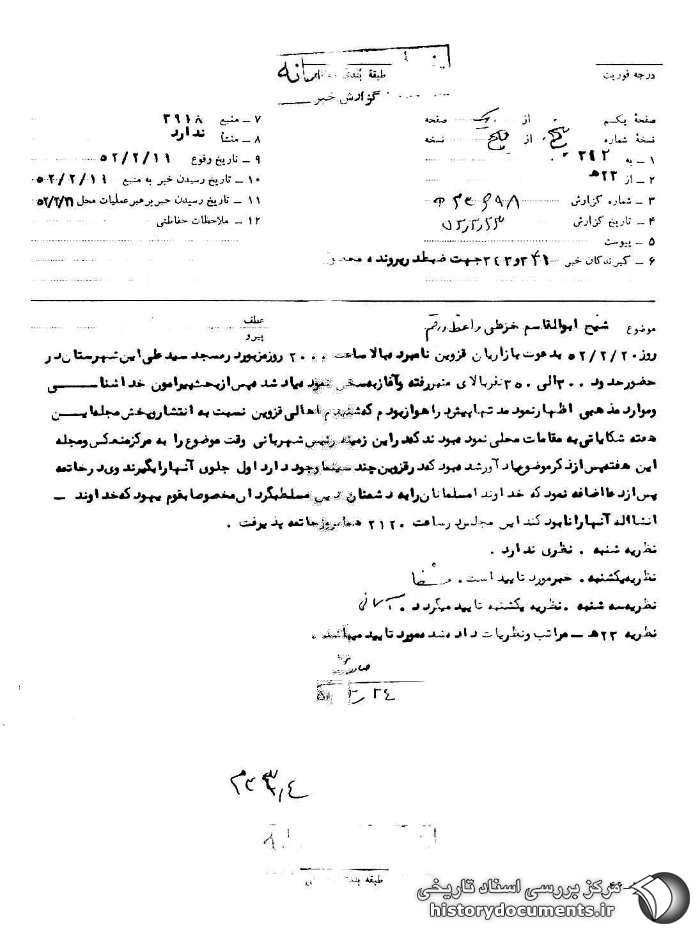 درجه فوریت
طبقه بندی
گزارش خبر
صفحهٔ یکم از یک صفحه
نسخهٔ شماره پنج از پنج نسخه
۱ ـ به ۳۹۲
۲ ـ از ۲۳ هـ
۳ ـ شمارهٔ گزارش
۴ ـ تاریخ گزارش
۵ ـ پیوست
۶ ـ گیرندگان خبر ۳۴۱ و ۳۴۳ جهت ضبط در پرونده
۷ ـ منبع ۲۹۱۸
۸ ـ منشأ ندارد
۹ ـ تاریخ وقوع
۱۰ ـ تاریخ رسیدن خبر به منبع
۱۱ ـ تاریخ رسیدن خبر برهبر عملیات محل
۱۲ ـ ملاحظات حفاظتی
موضوع شیخ ابوالقاسم خزعلی واعظ قم
عطف
پیرو
روز ۵۲/۲/۲۰ بدعوت بازاریان قزوین نامبرده بالا ساعت ۲۰۰۰ روز مزبور در مسجد سید علی این شهرستان در
حضور حدود ۳۰۰ الی ۳۵۰ نفر بالای منبر رفته و آغاز بسخن نموده یاد شده پس از بحث پیرامون خداشناسی
و موارد مذهبی اظهار نمود مدتها پیش در اهواز بودم که شنیدم اهالی قزوین نسبت به انتشار و پخش مجله این
هفته شکایاتی به مقامات محلی نموده بودند که در این زمینه رئیس شهربانی وقت موضوع را به مرکز منعکس و مجله
این هفته پس از ذکر موضوع یادآور شده بود که در قزوین چند سینما وجود دارد اول جلوی آنها را بگیرند وی در خاتمه
پس از دعا اضافه نمود که خداوندا مسلمانان را به دشمنان دین مسلط بگردان مخصوصا بقوم یهود که خداوند ـ
انشااله آنها را نابود کند این مجلس در ساعت ۲۱۲۰ همانروز خاتمه پذیرفت .
نظریه شنبه . نظری ندارد .
نظریه یکشنبه . خبر مورد تایید است .
نظریه سه شنبه . نظریه یکشنبه تایید میگردد .
نظریه ۲۳ هـ ـ مراتب و نظریات داده شده مورد تایید میباشد .
طبقه بندی
مرکز بررسی اسناد تاریخی
historydocuments.ir